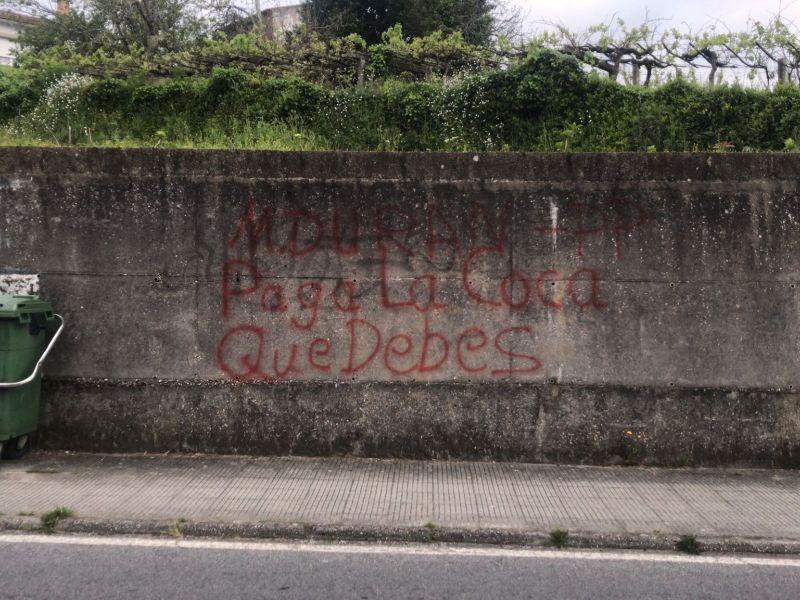 M.DURAN - PP
Paga La Coca
Que Debes